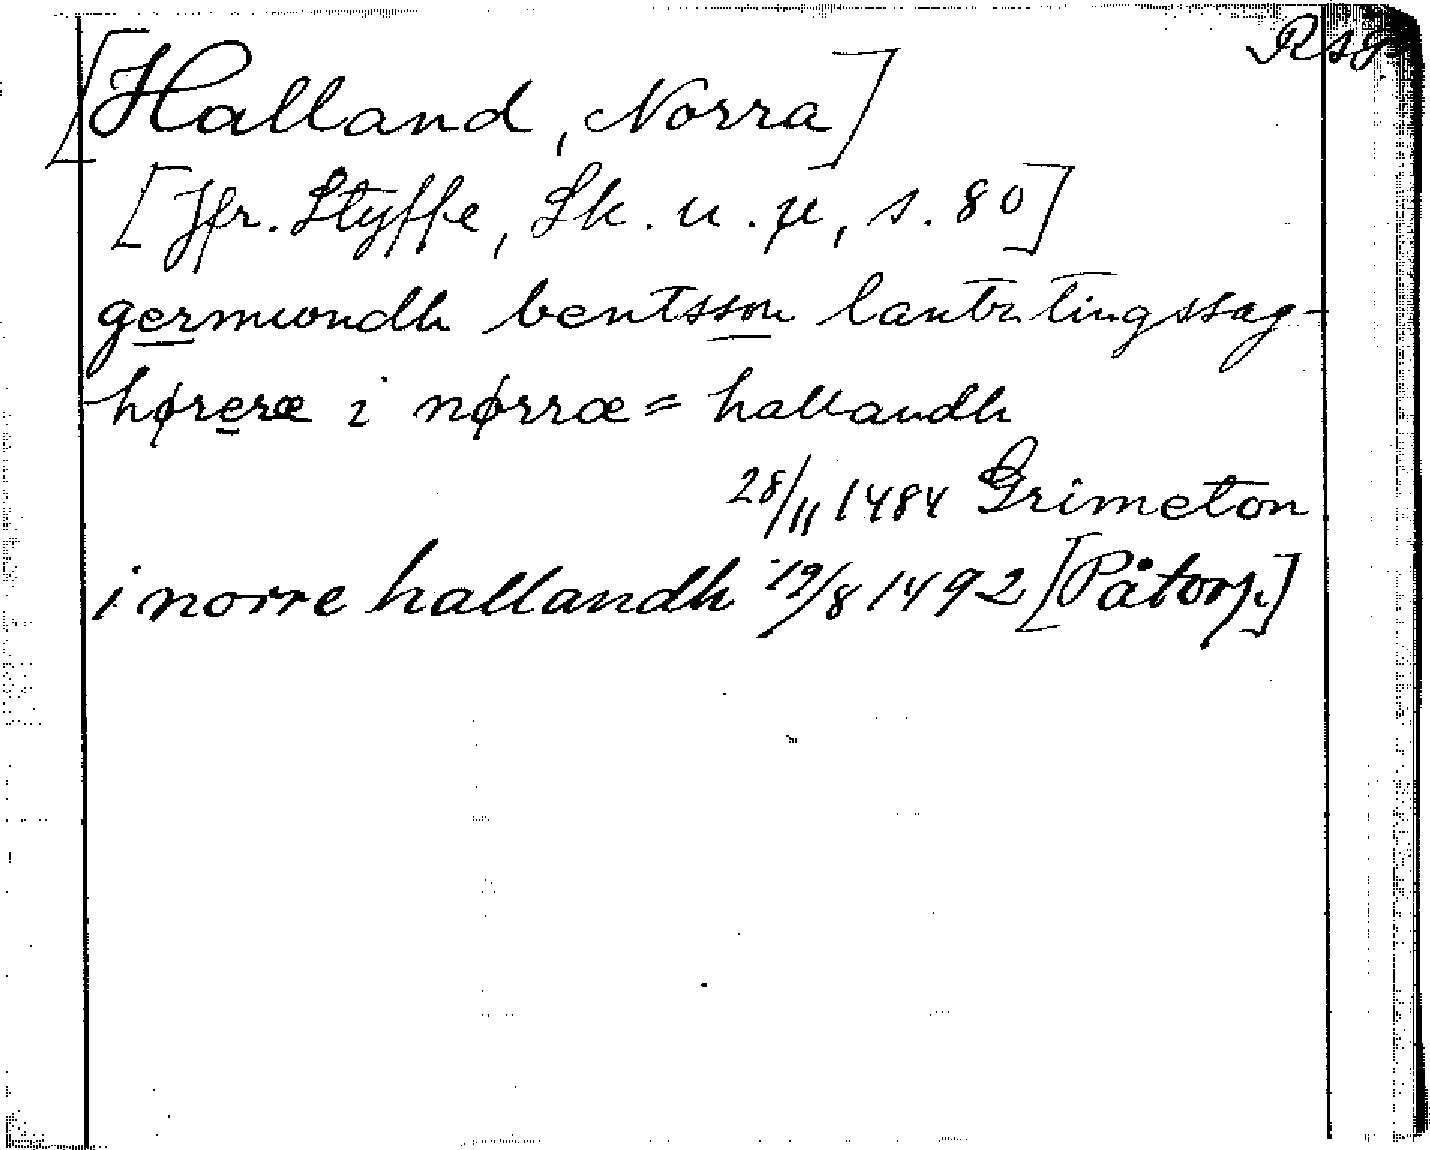 Rsg
[Halland, Norra]
[Jfr. Styffe, Sk. u. µ, s. 80]
germundh bentsson lantztingssag-
høreræ i nørræ= hallandh
28/11 1484 Grimeton
i norre hallandh 19/8 1492 [Påtorp.]